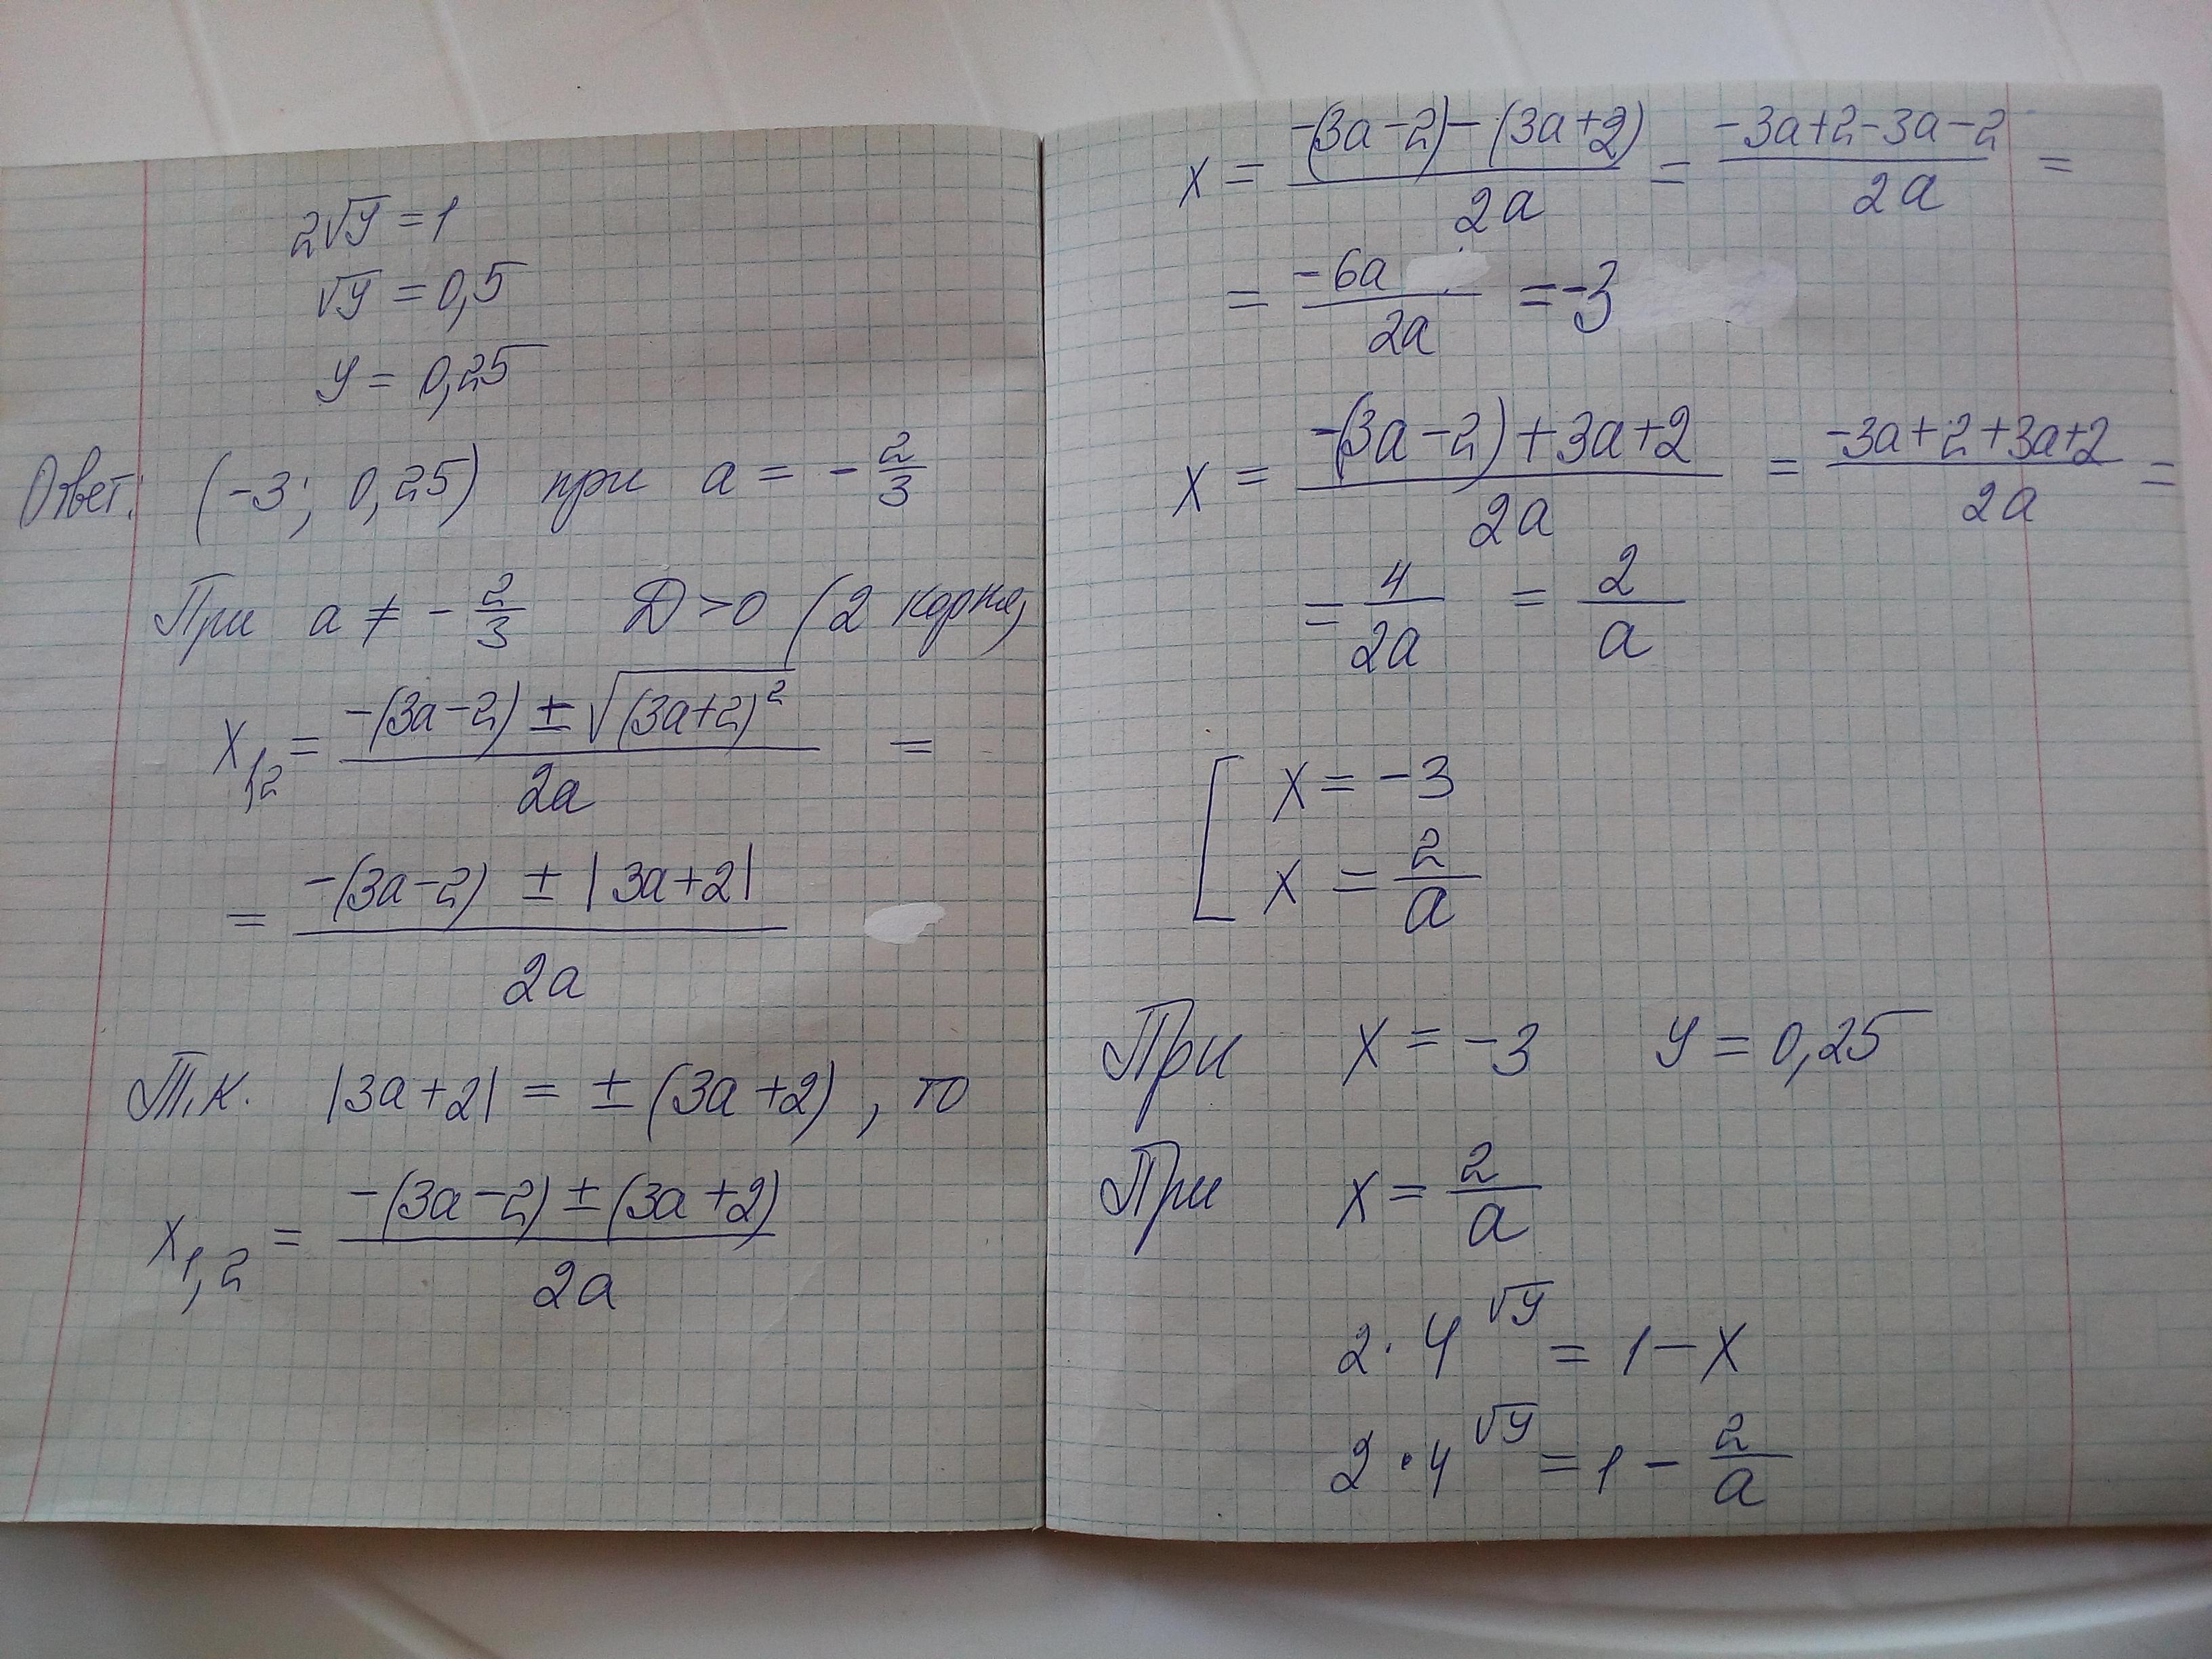 2√y = 1
√y = 0,5
y = 0,25
Ответ: (-3; 0,25) при a = -2/3
При a ≠ -2/3 D > 0 (2 корня)
x1,2 = (-(3a-2) ± √(3a+2)²)/2a =
= (-(3a-2) ± |3a+2|)/2a
Т.к. |3a+2| = ±(3a+2), то
x1,2 = (-(3a-2) ± (3a+2))/2a
x = (-(3a-2)-(3a+2))/2a = (-3a+2-3a-2)/2a =
= -6a/2a = -3
x = (-(3a-2)+3a+2)/2a = (-3a+2+3a+2)/2a =
= 4/2a = 2/a
[ x = -3
x = 2/a
При x = -3 y = 0,25
При x = 2/a
2·4^√y = 1-x
2·4^√y = 1 - 2/a